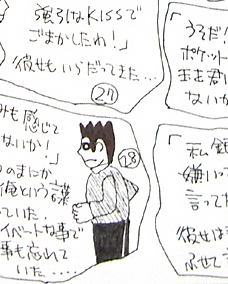 強引なKISSで
ごまかしたわ!」
彼女もいらだってきた…
27
「うそだ!
ポケット
まま君に
ないか
みも感じて
ないか!
!」
のまにか
俺という謎
ていた.
イベートな事で
事も忘れて
いた……
28
「私
嫌いって
言ってた
彼女は
ふせて